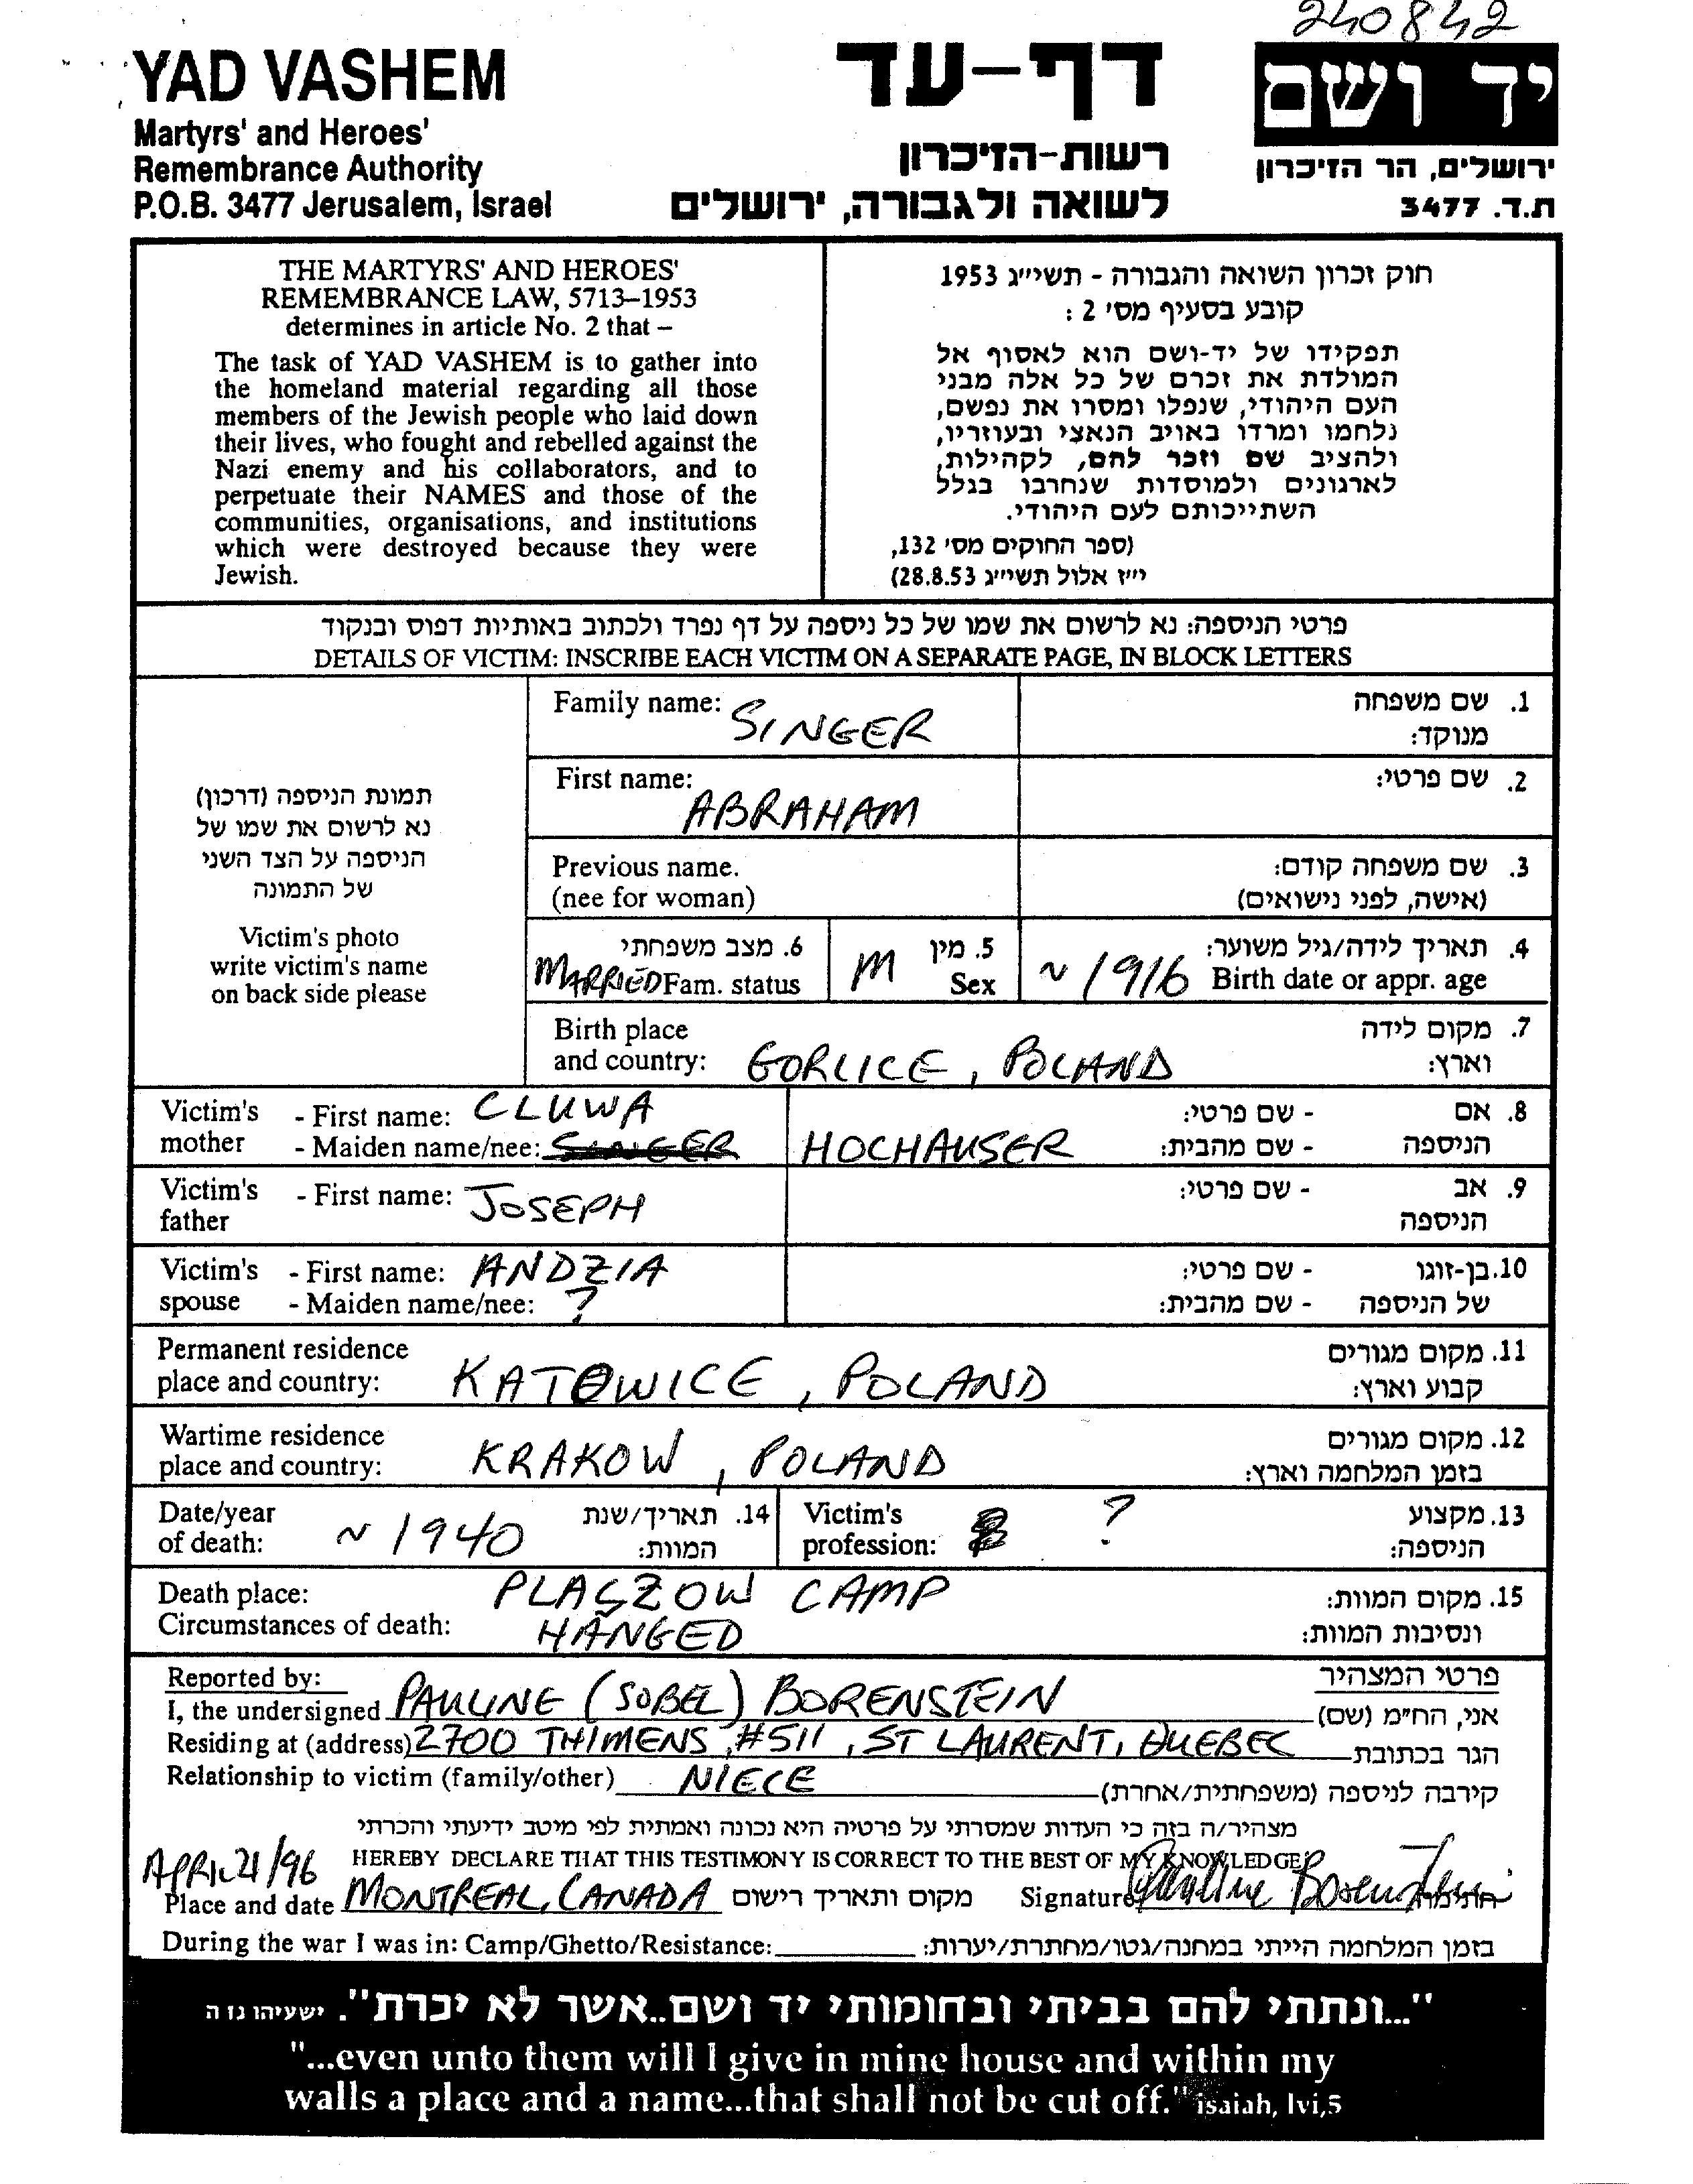 240842
YAD VASHEM
Martyrs' and Heroes'
Remembrance Authority
P.O.B. 3477 Jerusalem, Israel
דף-עד
רשות-הזיכרון
לשואה ולגבורה, ירושלים
יד ושם
ירושלים, הר הזיכרון
ת.ד. 3477
THE MARTYRS' AND HEROES'
REMEMBRANCE LAW, 5713–1953
determines in article No. 2 that –
The task of YAD VASHEM is to gather into
the homeland material regarding all those
members of the Jewish people who laid down
their lives, who fought and rebelled against the
Nazi enemy and his collaborators, and to
perpetuate their NAMES and those of the
communities, organisations, and institutions
which were destroyed because they were
Jewish.
חוק זכרון השואה והגבורה - תשי״ג 1953
קובע בסעיף מס׳ 2 :
תפקידו של יד-ושם הוא לאסוף אל
המולדת את זכרם של כל אלה מבני
העם היהודי, שנפלו ומסרו את נפשם,
נלחמו ומרדו באויב הנאצי ובעוזריו,
ולהציב שם וזכר להם, לקהילות,
לארגונים ולמוסדות שנחרבו בגלל
השתייכותם לעם היהודי.
(ספר החוקים מס׳ 132,
י״ז אלול תשי״ג 28.8.53)
פרטי הניספה: נא לרשום את שמו של כל ניספה על דף נפרד ולכתוב באותיות דפוס ובנקוד
DETAILS OF VICTIM: INSCRIBE EACH VICTIM ON A SEPARATE PAGE, IN BLOCK LETTERS
תמונת הניספה (דרכון)
נא לרשום את שמו של
הניספה על הצד השני
של התמונה
Victim's photo
write victim's name
on back side please
Family name: SINGER
1. שם משפחה
מנוקד:
First name: ABRAHAM
2. שם פרטי:
Previous name.
(nee for woman)
3. שם משפחה קודם:
(אישה, לפני נישואים)
6. מצב משפחתי
MARRIED Fam. status
5. מין
M Sex
4. תאריך לידה/גיל משוער:
~ 1916 Birth date or appr. age
Birth place
and country: GORLICE, POLAND
7. מקום לידה
וארץ:
Victim's mother - First name: CLUWA
- Maiden name/nee: SINGER HOCHAUSER
8. אם הניספה - שם פרטי:
- שם מהבית:
Victim's father - First name: JOSEPH
9. אב הניספה - שם פרטי:
Victim's spouse - First name: ANDZIA
- Maiden name/nee: ?
10. בן-זוגו של הניספה - שם פרטי:
- שם מהבית:
Permanent residence
place and country: KATOWICE, POLAND
11. מקום מגורים
קבוע וארץ:
Wartime residence
place and country: KRAKOW, POLAND
12. מקום מגורים
בזמן המלחמה וארץ:
Date/year
of death: ~ 1940
14. תאריך/שנת
המוות:
Victim's
profession: ?
13. מקצוע
הניספה:
Death place: PLASZOW CAMP
Circumstances of death: HANGED
15. מקום המוות:
ונסיבות המוות:
Reported by:
פרטי המצהיר
I, the undersigned PAULINE (SOBEL) BORENSTEIN אני, הח״מ (שם)
Residing at (address) 2700 THIMENS, #511, ST LAURENT, QUEBEC הגר בכתובת
Relationship to victim (family/other) NIECE קירבה לניספה (משפחתית/אחרת)
מצהיר/ה בזה כי העדות שמסרתי על פרטיה היא נכונה ואמתית לפי מיטב ידיעתי והכרתי
HEREBY DECLARE THAT THIS TESTIMONY IS CORRECT TO THE BEST OF MY KNOWLEDGE
APRIL 21/96
Place and date MONTREAL, CANADA מקום ותאריך רישום Signature Pauline Borenstein חתימה
During the war I was in: Camp/Ghetto/Resistance: בזמן המלחמה הייתי במחנה/גטו/מחתרת/יערות:
"...ונתתי להם בביתי ובחומותי יד ושם..אשר לא יכרת". ישעיהו נו ה
"...even unto them will I give in mine house and within my
walls a place and a name...that shall not be cut off." isaiah, lvi,5